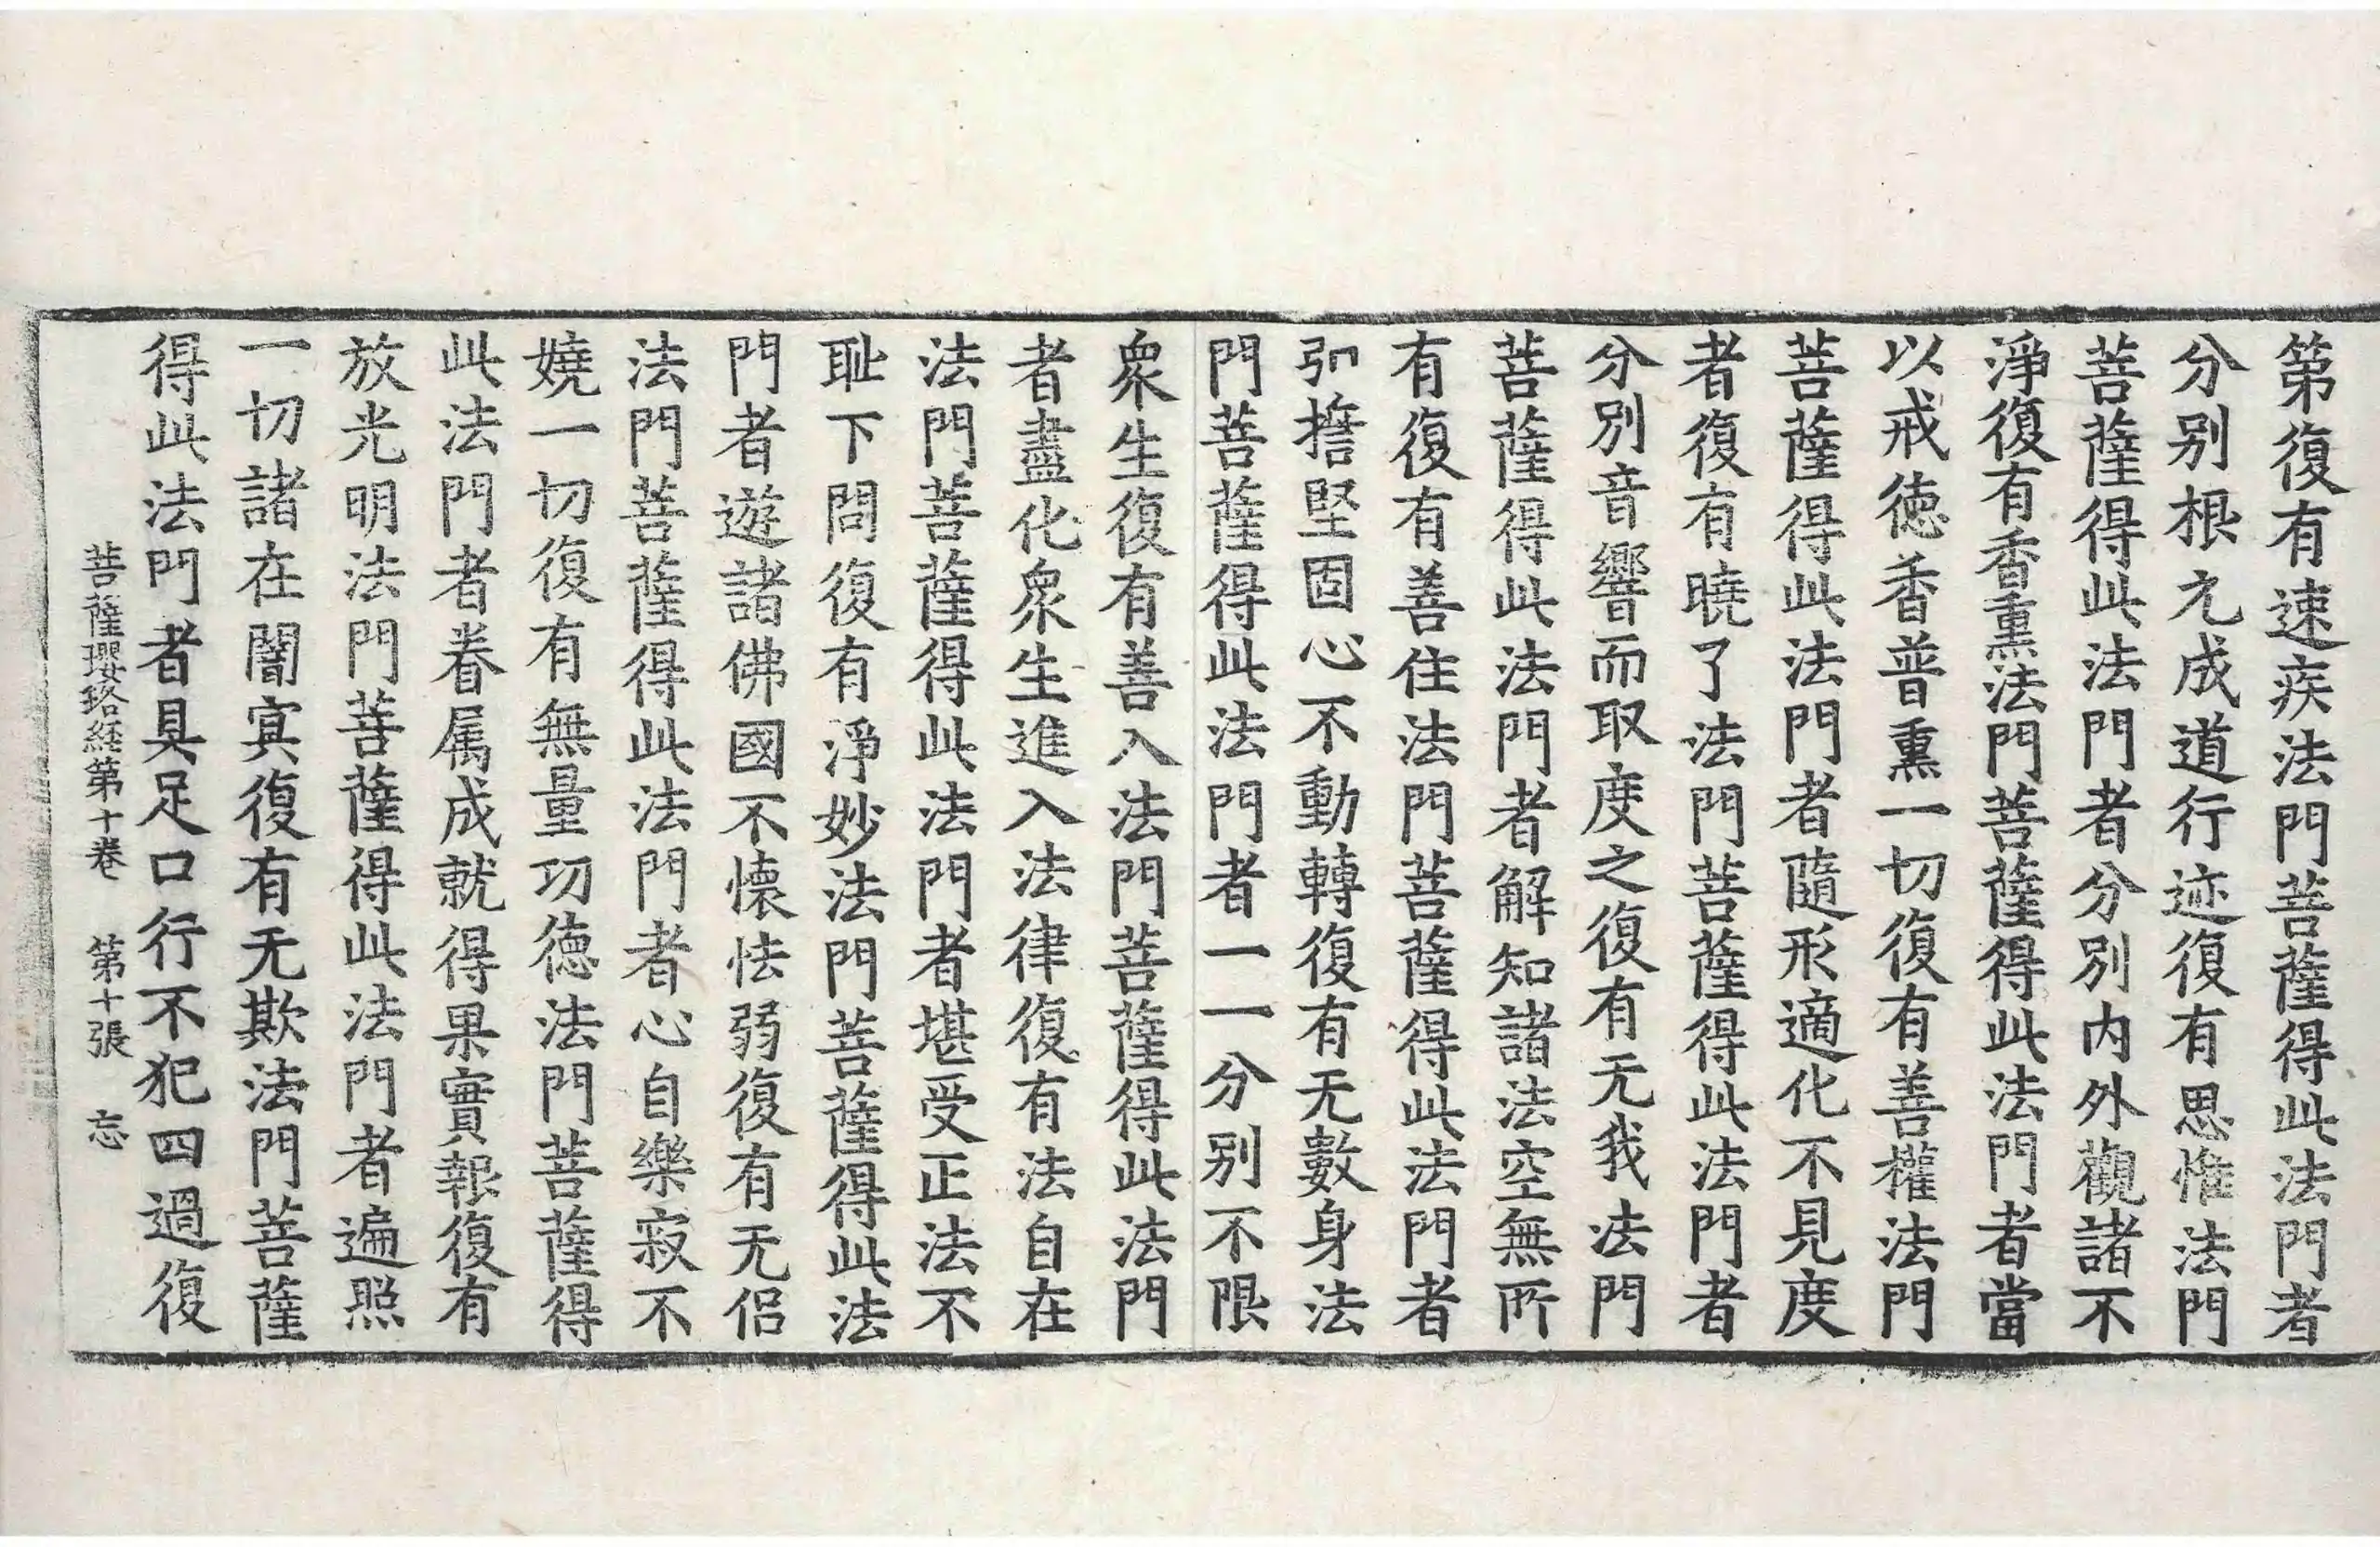 第復有速疾法門菩薩得此法門者
分别根元成道行迹復有思惟法門
菩薩得此法門者分別内外觀諸不
淨復有香熏法門菩薩得此法門者當
以戒德香普熏一切復有善權法門
菩薩得此法門者隨形適化不見度
者復有曉了法門菩薩得此法門者
分別音響而取度之復有无我法門
菩薩得此法門者解知諸法空無所
有復有善住法門菩薩得此法門者
弘擔堅固心不動轉復有无數身法
門菩薩得此法門者一一分别不限
衆生復有善入法門菩薩得此法門
者盡化衆生進入法律復有法自在
法門菩薩得此法門者堪受正法不
耻下問復有淨妙法門菩薩得此法
門者遊諸佛國不懷怯弱復有无侣
法門菩薩得此法門者心自樂寂不
嬈一切復有無量功德法門菩薩得
此法門者眷属成就得果實報復有
放光明法門菩薩得此法門者遍照
一切諸在闇冥復有无欺法門菩薩
得此法門者具足口行不犯四過復
菩薩瓔珞経第十卷　第十張　忘